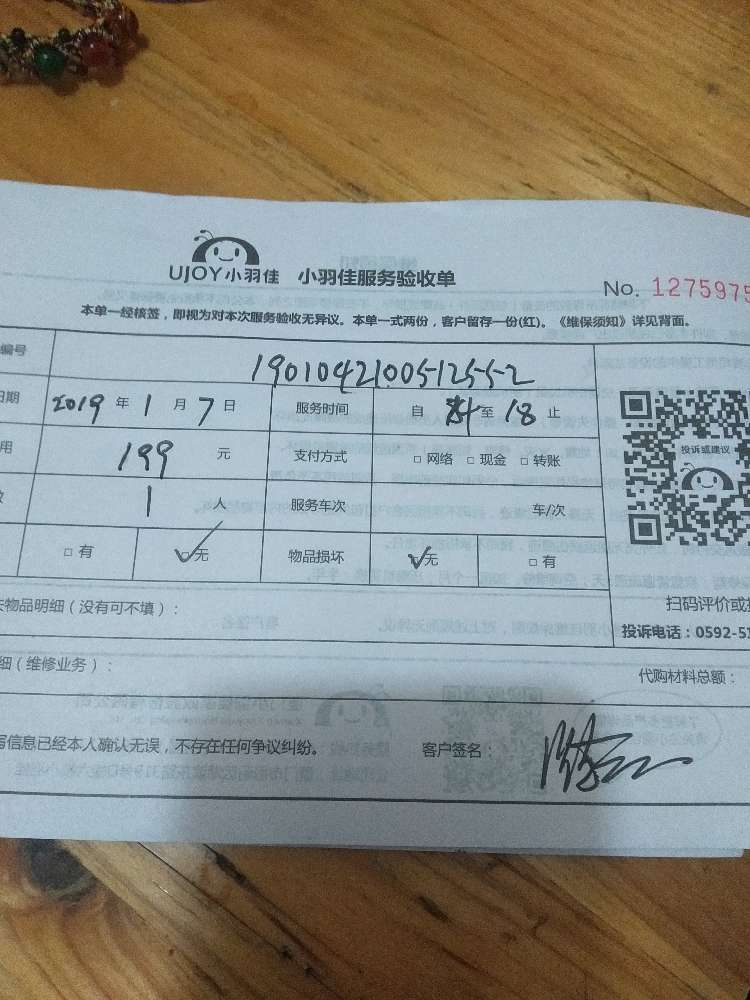 UJOY小羽佳 小羽佳服务验收单
No. 1275975
本单一经核签，即视为对本次服务验收无异议。本单一式两份，客户留存一份(红)。《维保须知》详见背面。
编号 19010421005-125-5-2
日期 2019 年 1 月 7 日 服务时间 自 至 18 止
用 199 元 支付方式 □ 网络 □ 现金 □ 转账
数 1 人 服务车次 车/次
□ 有 □ 无 物品损坏 □ 无 □ 有
投诉或建议
扫码评价或
物品明细（没有可不填）：
投诉电话：0592-51
细（维修业务）：
代购材料总额：
写信息已经本人确认无误，不存在任何争议纠纷。 客户签名：